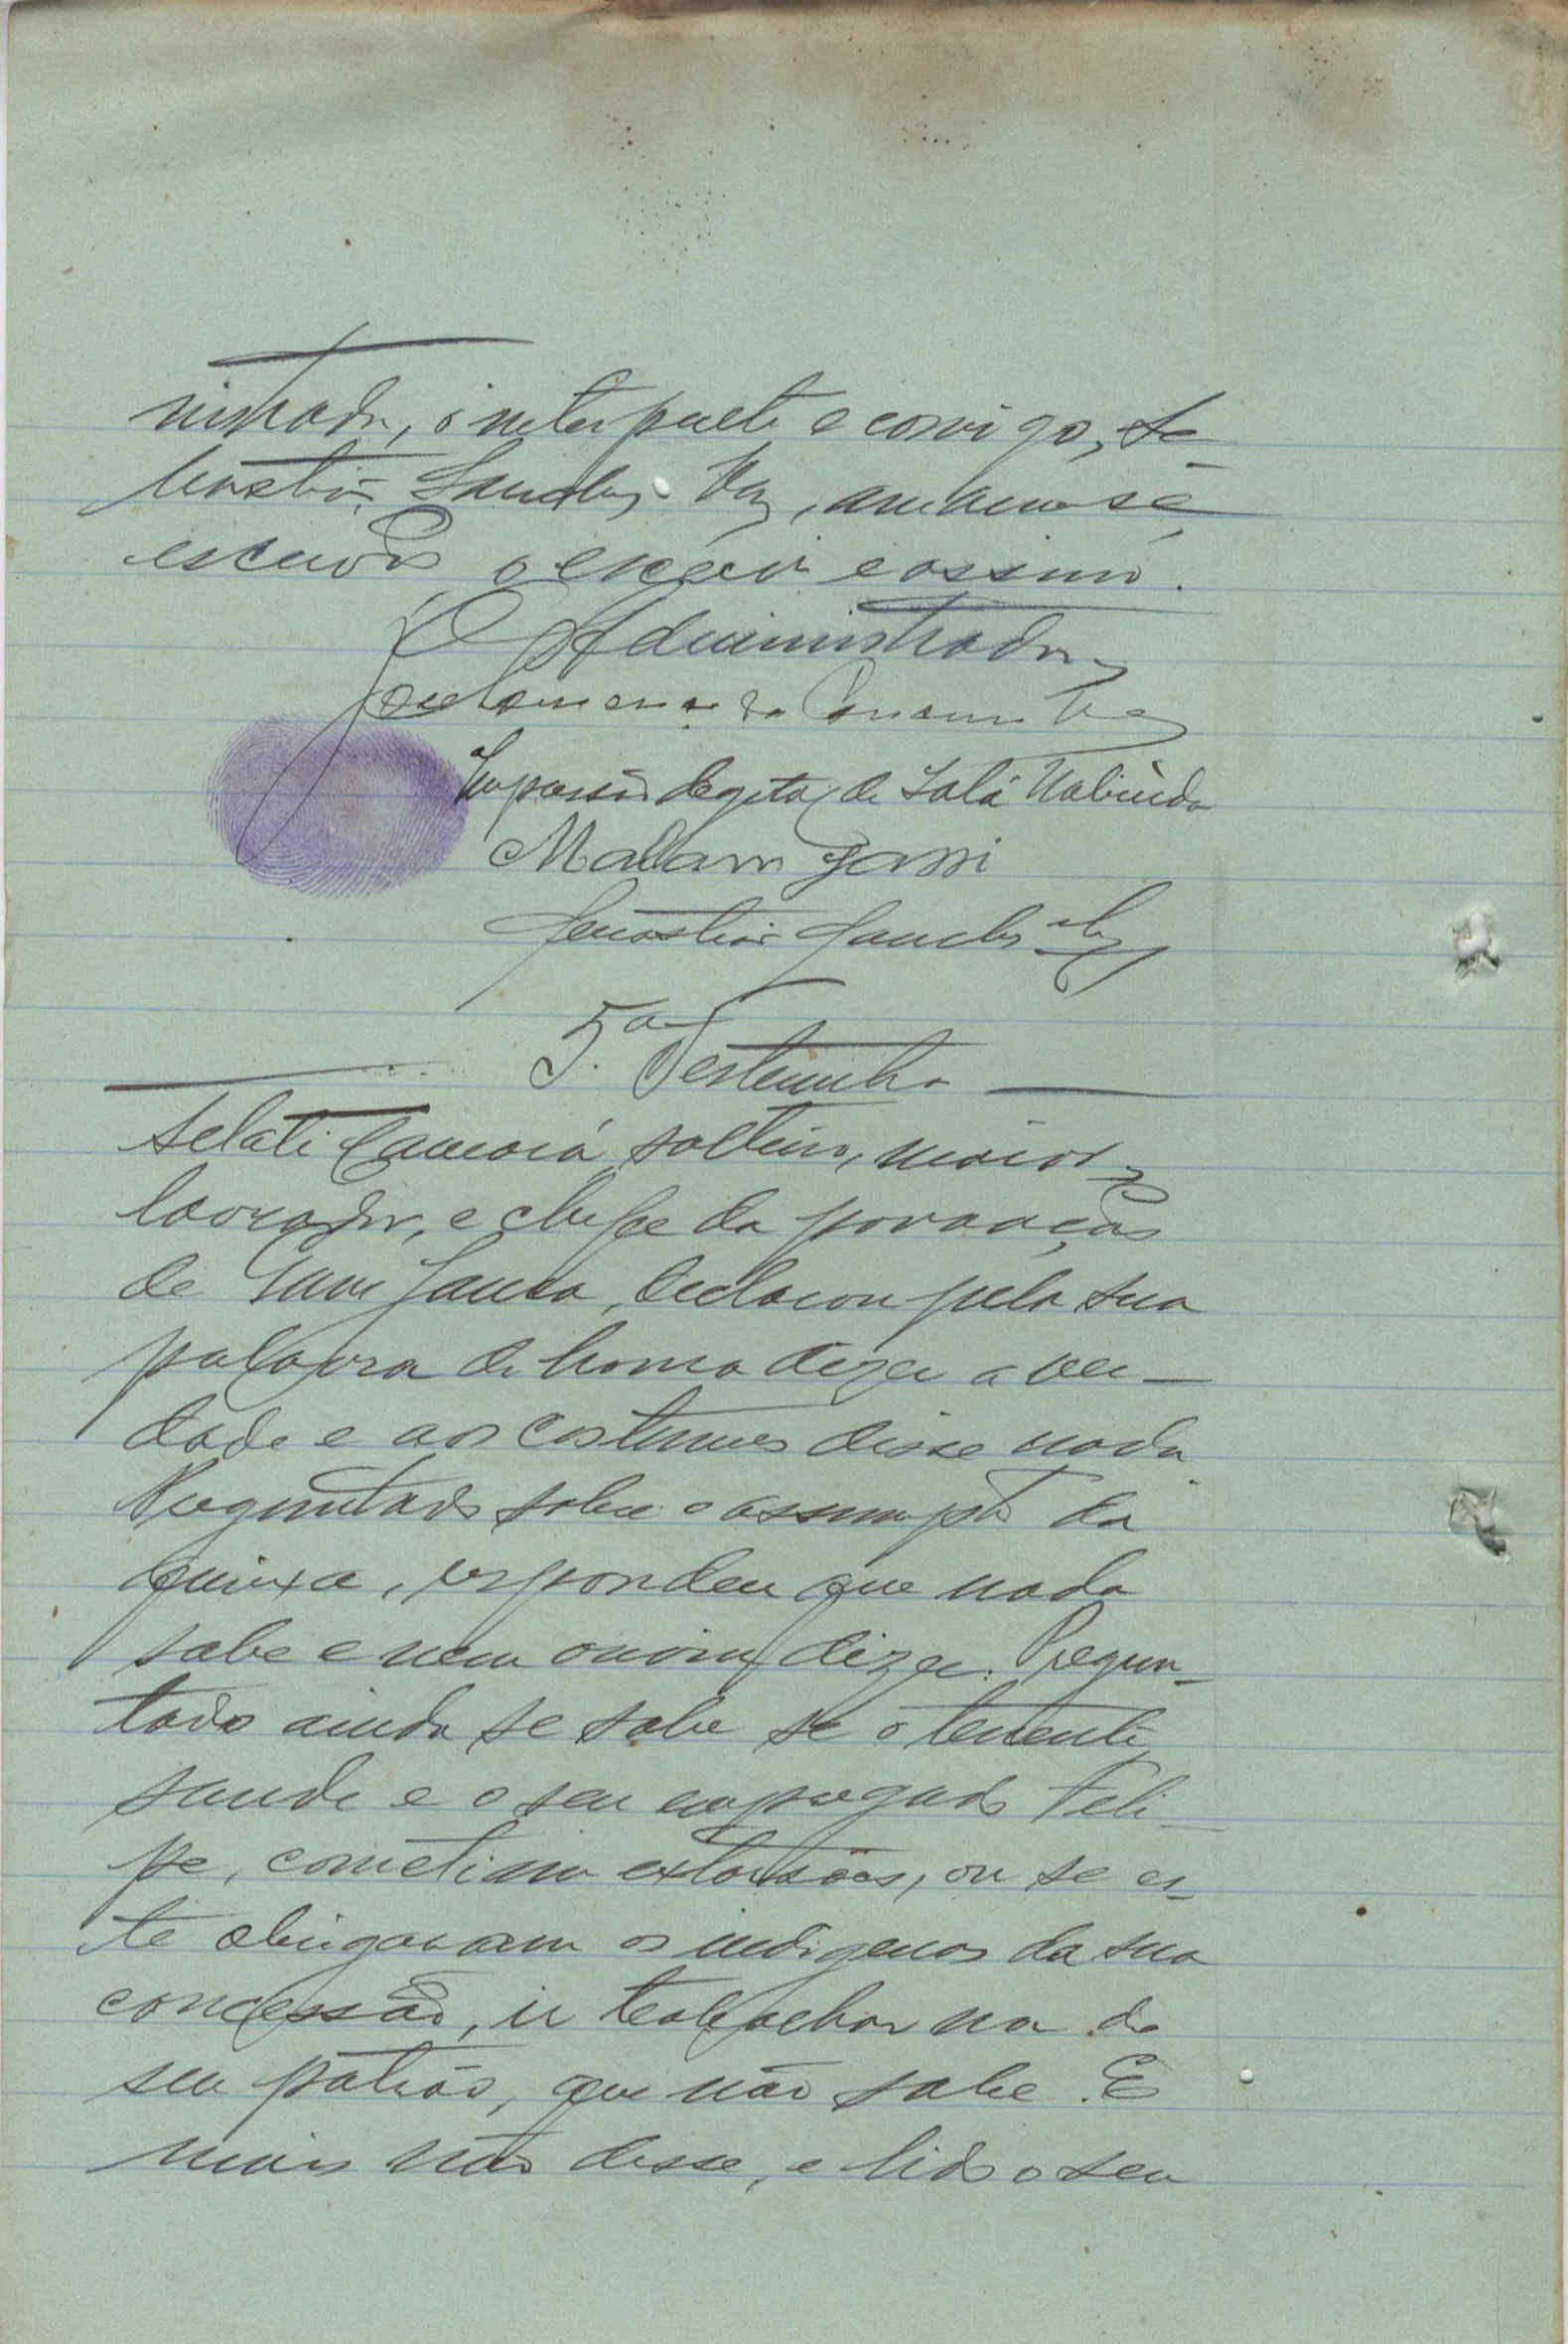 nistrador, o interprete e comigo, Se
bastião Sanches Vaz, amanuense
escrivão o escrevi e assino.
O Administrador
Impressão degital de Salá Nabinda
Malam Jassi
Sebastião Sanches Vaz
5.a Testemunha
Selati Camará, solteiro, maior
lavrador, e chefe da povoação
de Sam Jauta, declarou pela sua
palavra de honra dizer a ver-
dade e aos costumes disse nada
Preguntado sobre o assumpto da
queixa, respondeu que nada
sabe e nem ouviu dizer. Pregun-
tado ainda se sabe se o tenente
Saude e o seu empregado Feli-
pe, cometiam extorsões, ou se es-
te obrigavam os indigenas da sua
concessão, ir trabalhar na do
seu patrão, que não sabe. E
mais não disse, e lido o seu